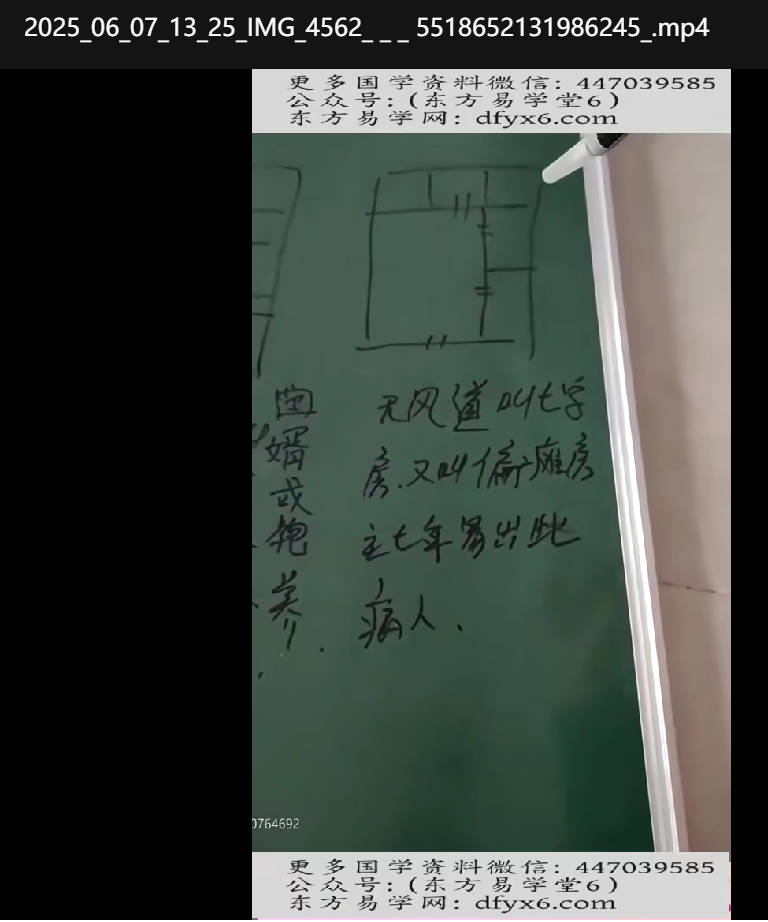 2025_06_07_13_25_IMG_4562_ _ _ 5518652131986245_.mp4
更多国学资料微信：447039585
公众号：（东方易学堂6）
东方易学网：dfyx6.com
无风道叫七字
房.又叫偏瘫房
主七年易出此
病人.
婿
或
抱
养.
0764692
更多国学资料微信：447039585
公众号：（东方易学堂6）
东方易学网：dfyx6.com